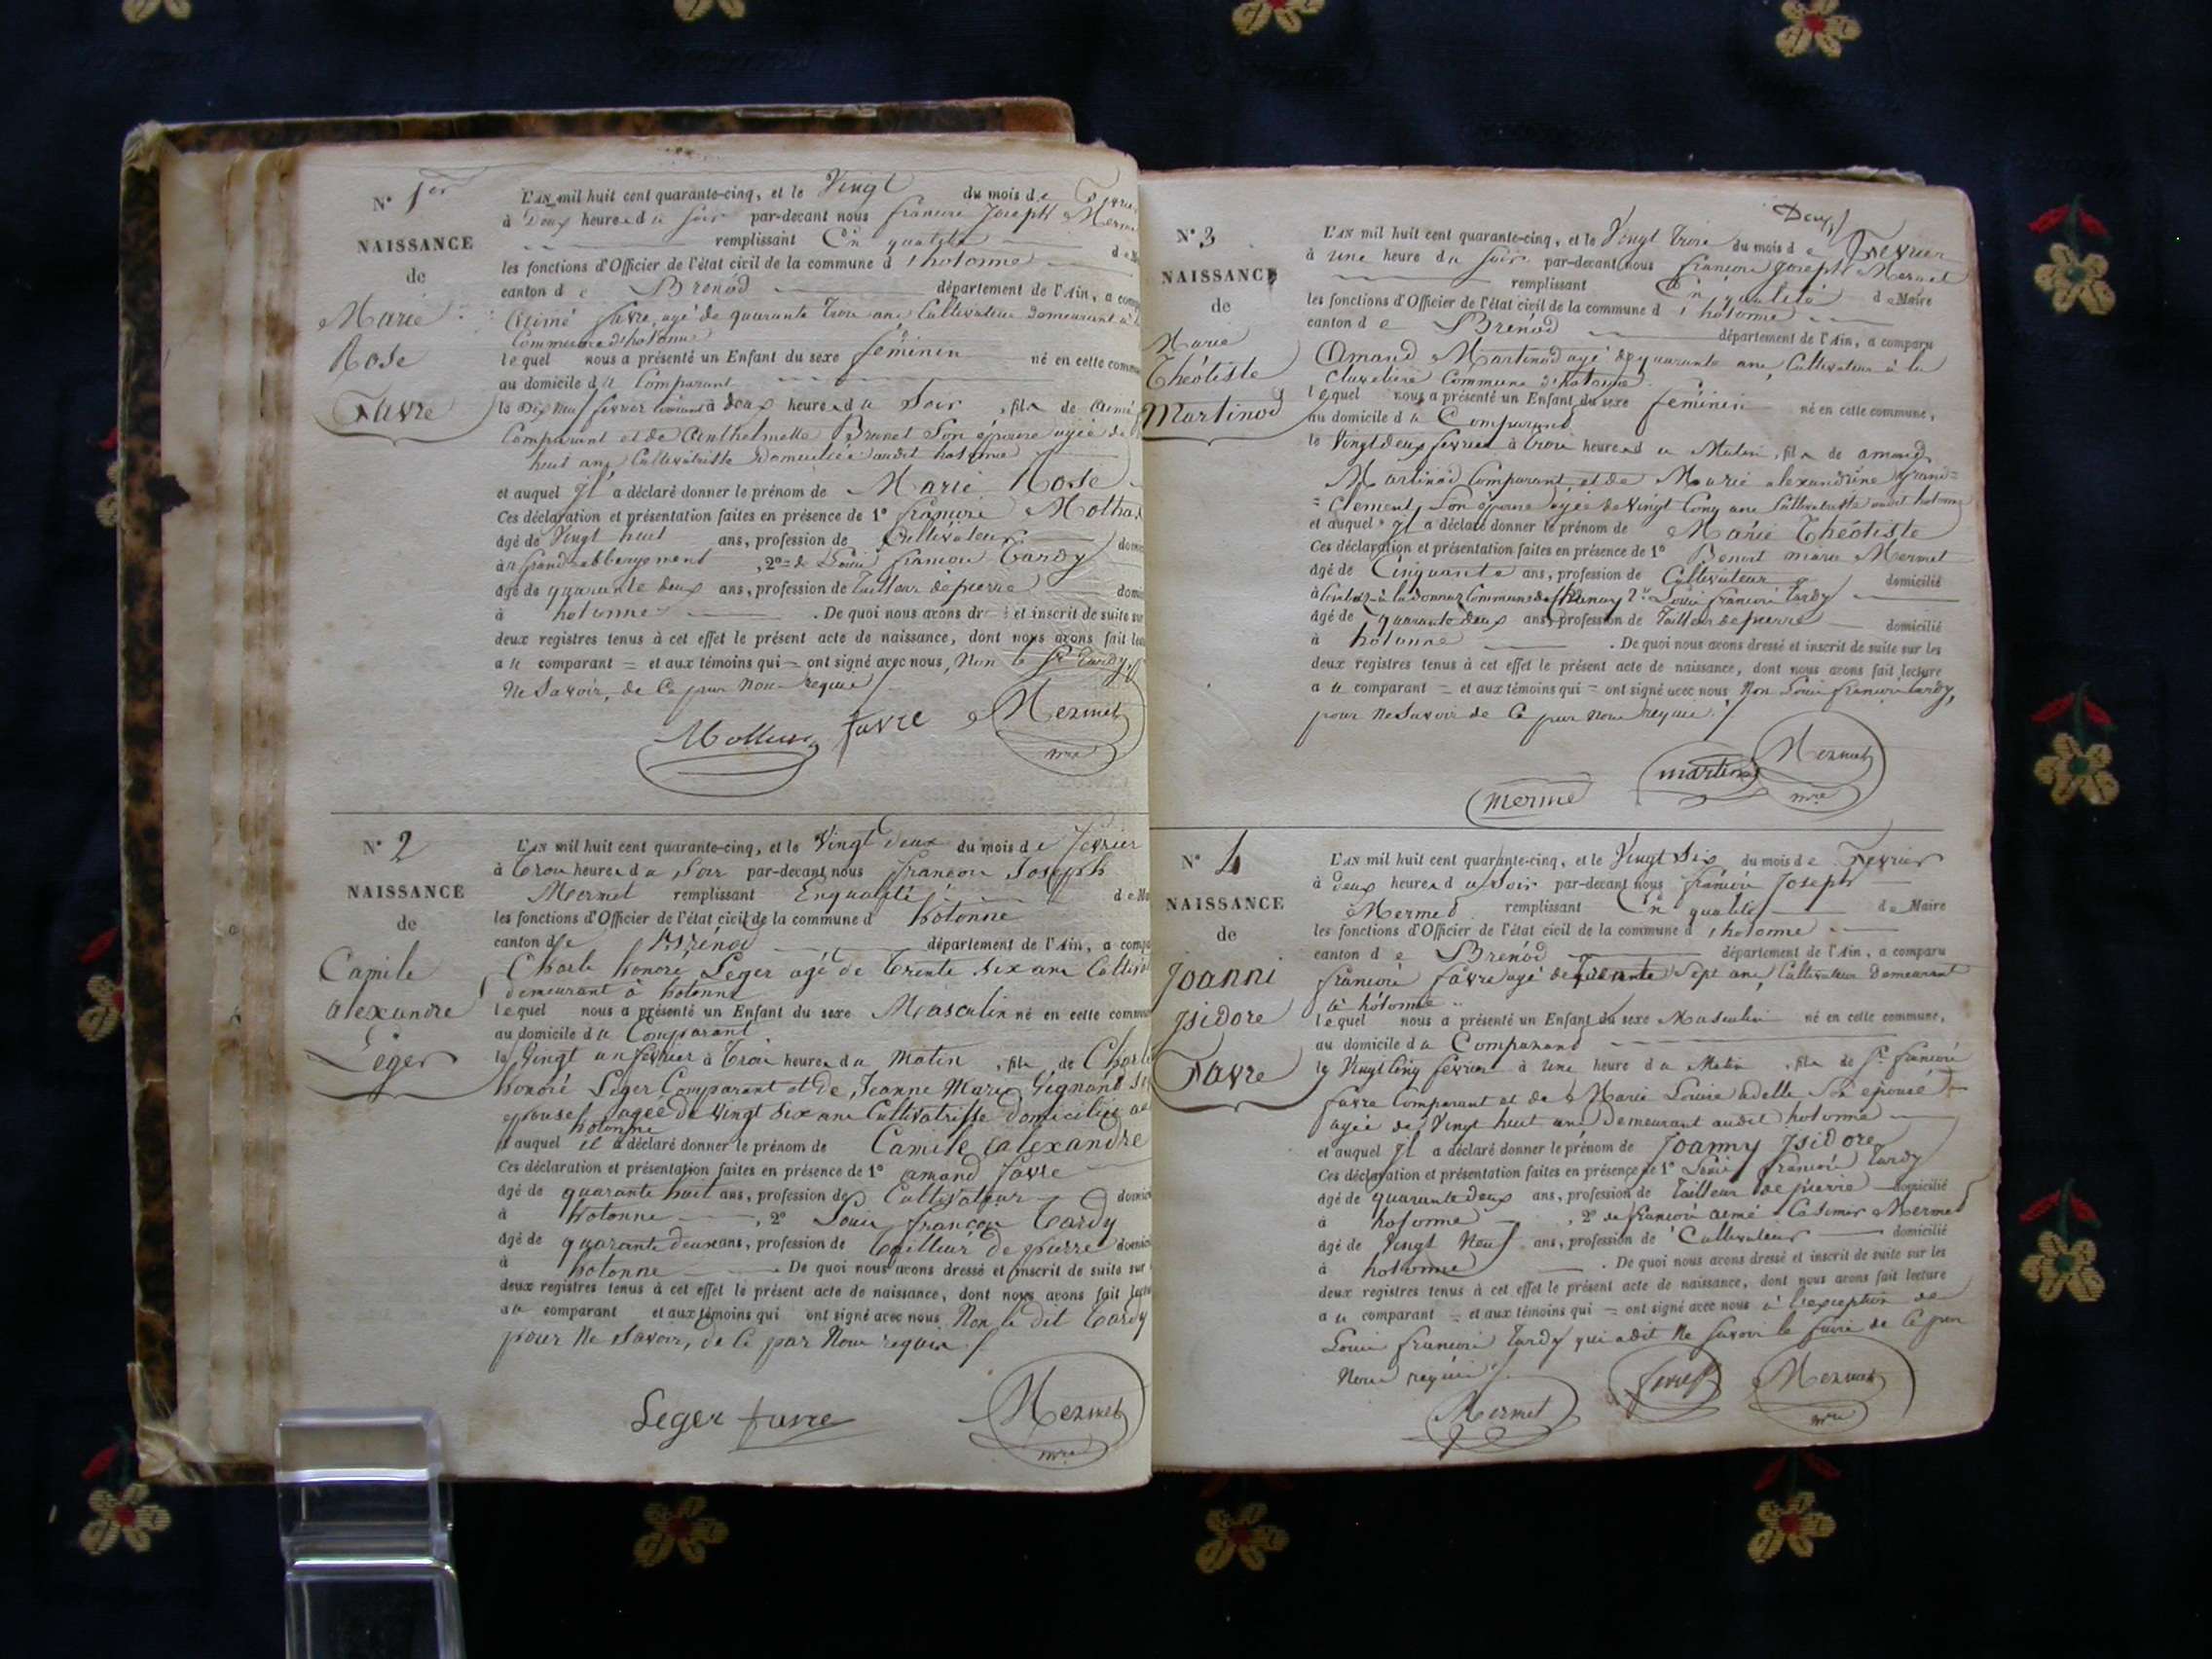 N° 1er
NAISSANCE
de
Marie
Rose
Favre
L'AN mil huit cent quarante-cinq, et le Vingt du mois de
à Deux heures du soir par-devant nous françois Joseph
remplissant En qualité
les fonctions d'Officier de l'état civil de la commune d'hotonne
canton de Brénod département de l'Ain, a
Aimé favre agé de quarante trois ans Cultivateur demeurant à
Commune d'hotonne
lequel nous a présenté un Enfant du sexe féminin né en cette
au domicile du Comparant
le Dix neuf fevrier à deux heures du Soir, fille de aimé
Comparant et de Anthelmette Brunet Son épouse agée de
huit ans Cultivatrisse Domiciliée audit hotonne
et auquel Jl a déclaré donner le prénom de Marie Rose
Ces déclaration et présentation faites en présence de 1° françois
âgé de Vingt huit ans, profession de Cultivateur
à grand abbergement, 2° de Louis francois Tardy
âgé de quarante deux ans, profession de Tailleur de pierre
à hotonne. De quoi nous avons et inscrit de suite sur
deux registres tenus à cet effet le présent acte de naissance, dont nous avons fait
au comparant et aux témoins qui ont signé avec nous, Non le Sr Tardy
Ne Savoir, de Ce par nous requis
favre Mermet
mre
N° 2
NAISSANCE
de
Camile
alexandre
Léger
L'AN mil huit cent quarante-cinq, et le Vingt deux du mois de fevrier
à trois heures du Soir par-devant nous françois Joseph
Mermet remplissant En qualité
les fonctions d'Officier de l'état civil de la commune d hotonne
canton de Brénod département de l'Ain, a
Charle honoré Leger agé de trente six ans
demeurant à hotonne
lequel nous a présenté un Enfant du sexe Masculin né en cette
au domicile du Comparant
le Vingt un fevrier à trois heures du Matin, fils de
honoré Leger Comparant et de Jeanne Marie
epouse agée de vingt six ans Cultivatrisse domiciliée
hotonne
et auquel il a déclaré donner le prénom de Camile alexandre
Ces déclaration et présentation faites en présence de 1° amand favre
âgé de quarante huit ans, profession de Cultivateur
à hotonne, 2° Louis françois Tardy
âgé de quarante deux ans, profession de Tailleur de pierre
à hotonne. De quoi nous avons dressé et inscrit de suite sur
deux registres tenus à cet effet le présent acte de naissance, dont nous avons fait
au comparant et aux témoins qui ont signé avec nous Non le dit Tardy
pour Ne Savoir, de Ce par Nous requis
Leger favre Mermet
mre
Deux
N° 3
NAISSANCE
de
Marie
Théotiste
Martinod
L'AN mil huit cent quarante-cinq, et le Vingt trois du mois de Fevrier
à Une heure du soir par-devant nous françois Joseph Mermet
remplissant En qualité de Maire
les fonctions d'Officier de l'état civil de la commune d'hotonne
canton de Brénod département de l'Ain, a comparu
Amand Martinod agé de quarante ans, Cultivateur à la
Commune d'hotonne
lequel nous a présenté un Enfant du sexe feminin né en cette commune,
au domicile du Comparant
le Vingt deux fevrier à trois heures du Matin, fille de amand
Martinod Comparant et de Marie alexandrine grand=
=Clement, Son épouse agée de vingt Cinq ans Cultivatrisse audit hotonne
et auquel Jl a déclaré donner le prénom de Marie Théotiste
Ces déclaration et présentation faites en présence de 1° Benoit marie Mermet
âgé de Cinquante ans, profession de Cultivateur domicilié
Commune de 2° Louis françois Tardy
âgé de quarante deux ans, profession de Tailleur de pierre domicilié
à hotonne. De quoi nous avons dressé et inscrit de suite sur les
deux registres tenus à cet effet le présent acte de naissance, dont nous avons fait lecture
au comparant et aux témoins qui ont signé avec nous Non Louis françois Tardy,
pour Ne Savoir de Ce par Nous requis
merme martinod Mermet
mre
N° 4
NAISSANCE
de
Joanni
Jsidore
Favre
L'AN mil huit cent quarante-cinq, et le Vingt Six du mois de Fevrier
à deux heures du soir par-devant nous françois Joseph
Mermet remplissant En qualité de Maire
les fonctions d'Officier de l'état civil de la commune d'hotonne
canton de Brénod département de l'Ain, a comparu
françois favre agé de trente Sept ans, Cultivateur Demeurant
à hotonne
lequel nous a présenté un Enfant du sexe Masculin né en cette commune,
au domicile du Comparant
le Vingt Cinq fevrier à Une heure du Matin, fils de Sr françois
favre Comparant et de Marie Louise adelle Son epouse
agée de Vingt huit ans Demeurant audit hotonne
et auquel Jl a déclaré donner le prénom de Joanny Jsidore
Ces déclaration et présentation faites en présence de 1° Louis françois Tardy
âgé de quarante deux ans, profession de Tailleur de pierre domicilié
à hotonne, 2° de françois aimé Casimir Mermet
âgé de Vingt Neuf ans, profession de Cultivateur domicilié
à hotonne. De quoi nous avons dressé et inscrit de suite sur les
deux registres tenus à cet effet le présent acte de naissance, dont nous avons fait lecture
au comparant et aux témoins qui ont signé avec nous à l'exception de
Louis françois Tardy qui a dit Ne Savoir le faire de Ce par
Nous requis
Mermet favre Mermet
mre